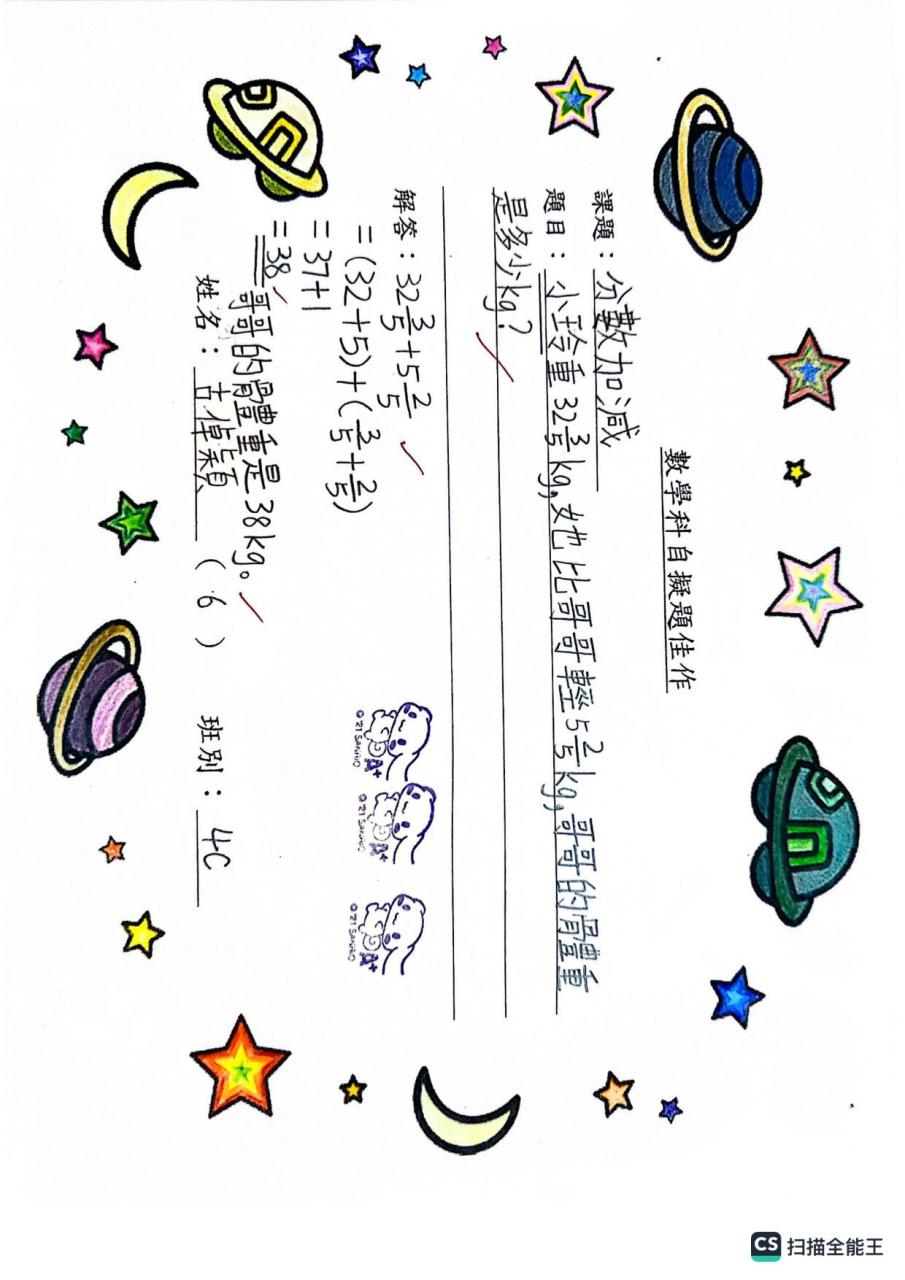 數學科自擬題佳作
課題：分數加減
題目：小玲重32 3/5 kg,她比哥哥輕5 2/5 kg,哥哥的體重
是多少kg?
解答：32 3/5 + 5 2/5
= (32+5)+(3/5+2/5)
= 37+1
= 38
哥哥的體重是38kg。
姓名：古倬穎 (6) 班別：4C
A+
©'21 SANRIO
A+
©'21 SANRIO
A+
©'21 SANRIO
CS 扫描全能王